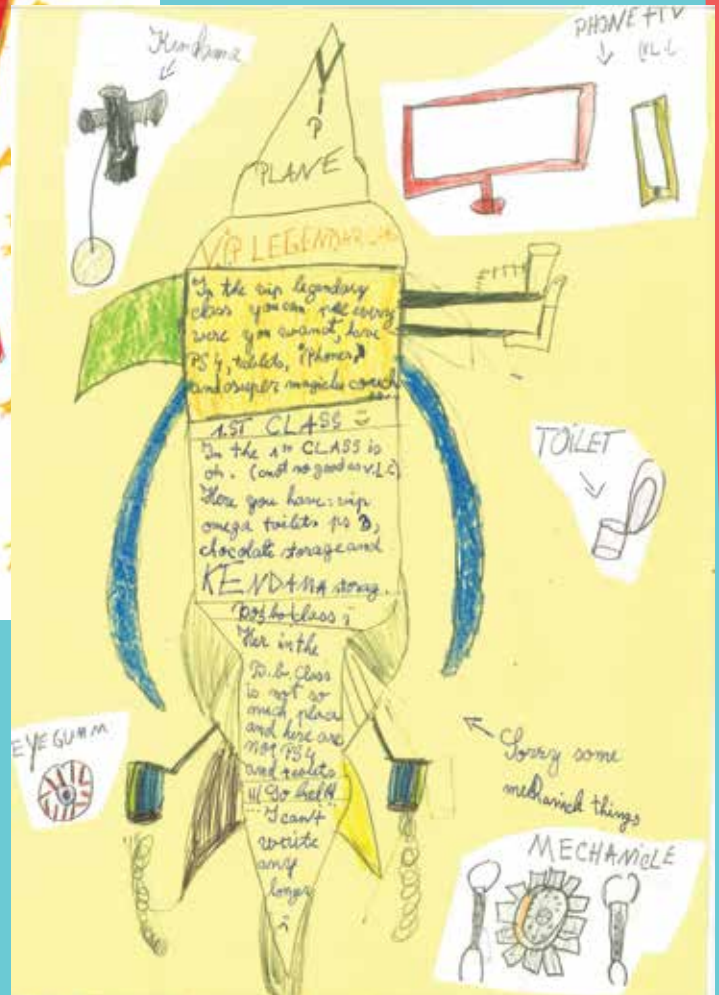 Kendama
PHONE + TV
P
PLANE
V.i.P LEGENDARY
In the vip legendary
class you can
were you wanot, have
PS4, tablets, iPhones,
and super magicle couch
1.ST CLASS
In the 1st CLASS is
oh. (and not so good as V.L.C)
Here you have: vip
omega toilets ps 3,
chocolate storage and
KENDAMA storag.
class
Her in the
D.b. Class
is not so
much place
and here are
not PS4
and
!!! Go
I can't
write
any
longer
TOiLET
EYEGUMM
Sorry some
mechanick things
MECHANiCLE